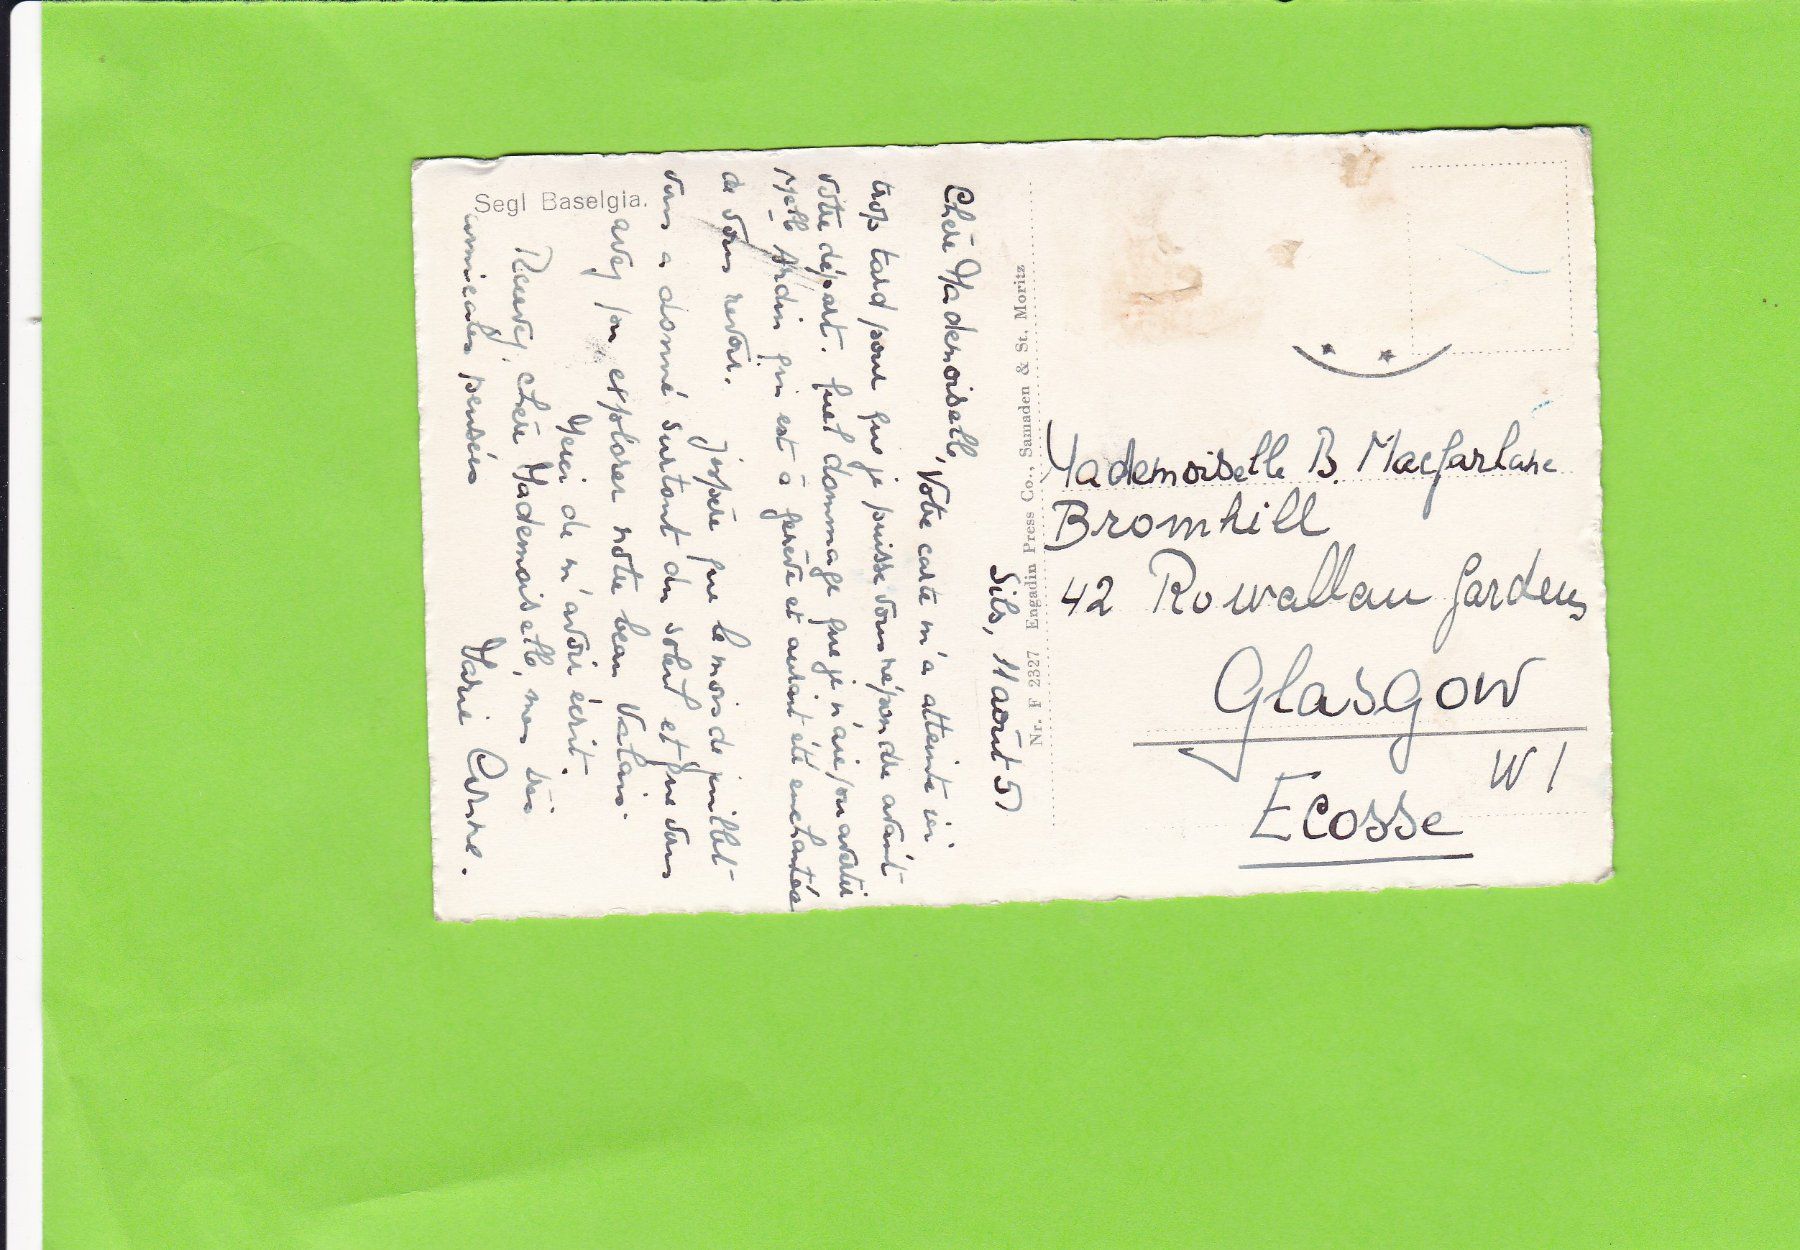 Segl Baselgia.
Sils, 11 août 51
Chère Mademoiselle, Votre carte m'a atteinte ici
trop tard pour que je puisse vous répondre avant
votre départ. Quel dommage que je n'aie pu avertir
Melle qui est à Genève et aurait été enchantée
de vous revoir. J'espère que le mois de juillet
vous a donné surtout du soleil et que vous
avez pu explorer notre beau Valais
Merci de m'avoir écrit.
Recevez, chère Mademoiselle, mes très
amicales pensées
Marie
Nr. F 2327 Engadin Press Co., Samaden & St. Moritz
Mademoiselle B. Macfarlane
Bromhill
42 Rowallan Gardens
Glasgow
W 1
Ecosse